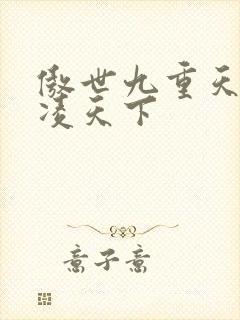 傲世九重天
凌天下
意子意